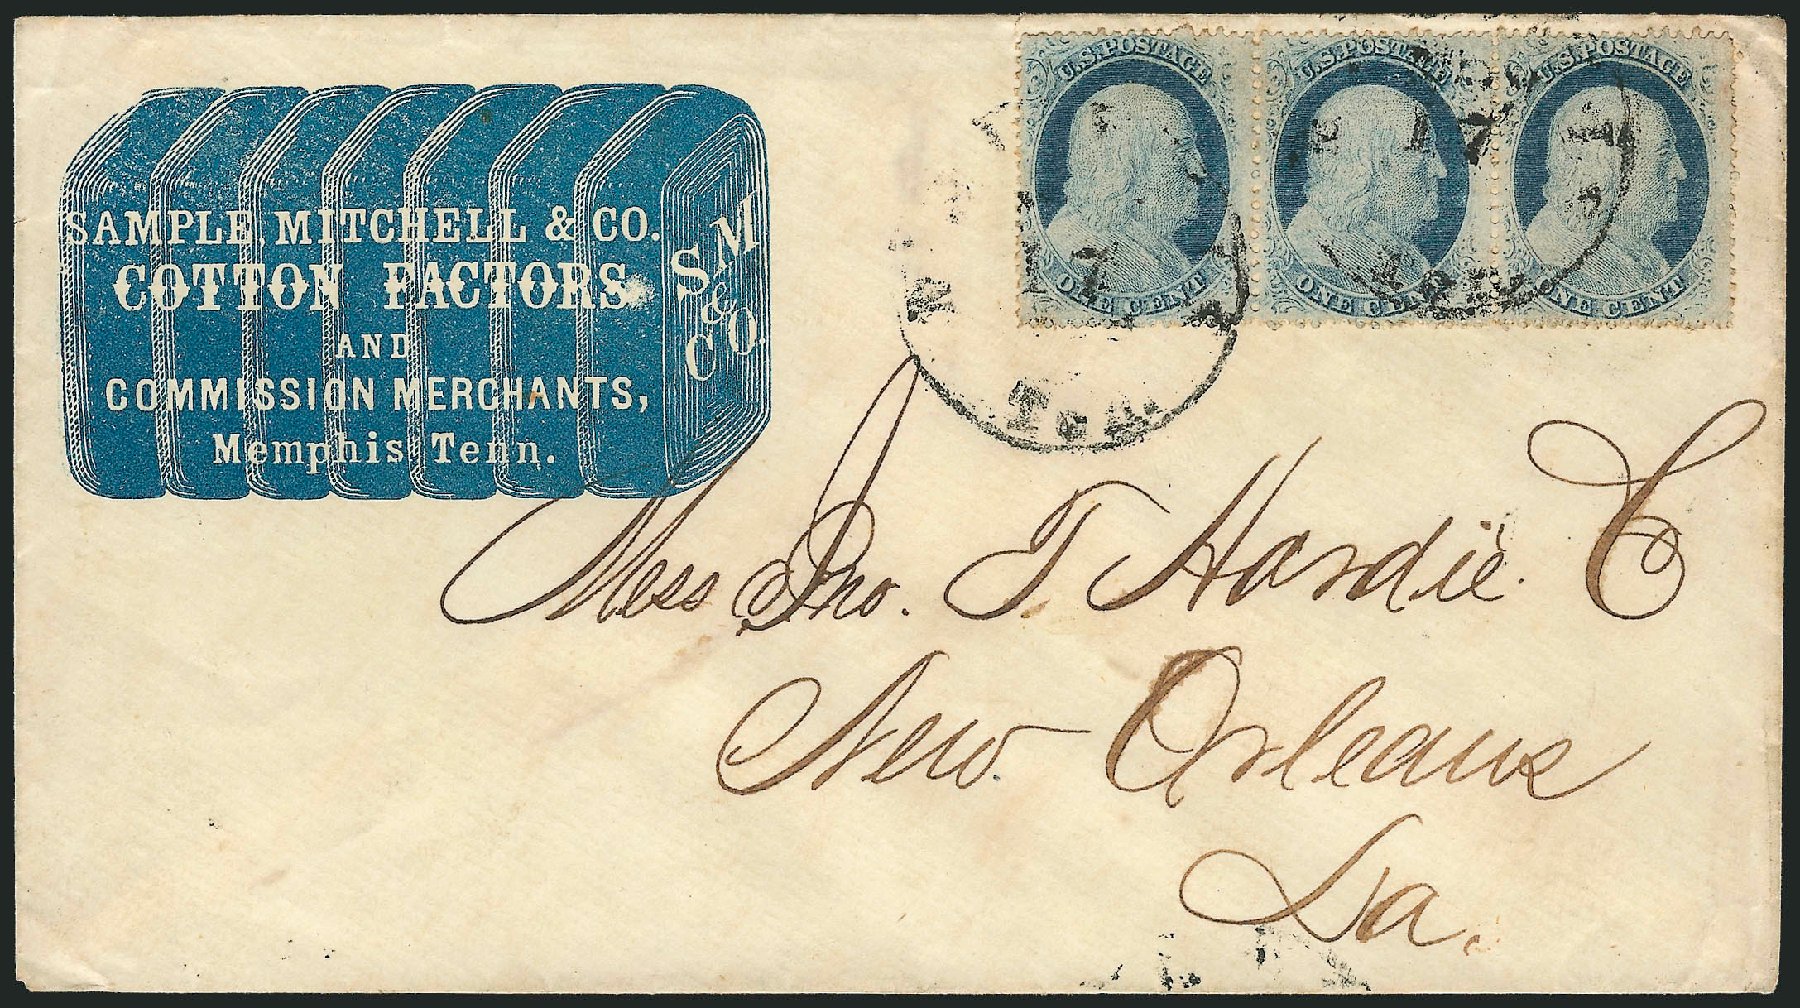 SAMPLE, MITCHELL & CO.
COTTON FACTORS
AND
COMMISSION MERCHANTS,
Memphis Tenn.
S M
& 
C O.
U.S. POSTAGE
ONE CENT
U.S. POSTAGE
ONE CENT
U.S. POSTAGE
ONE CENT
17
17
Ten.
Mess Jno. T Hardie C
New Orleans
La.